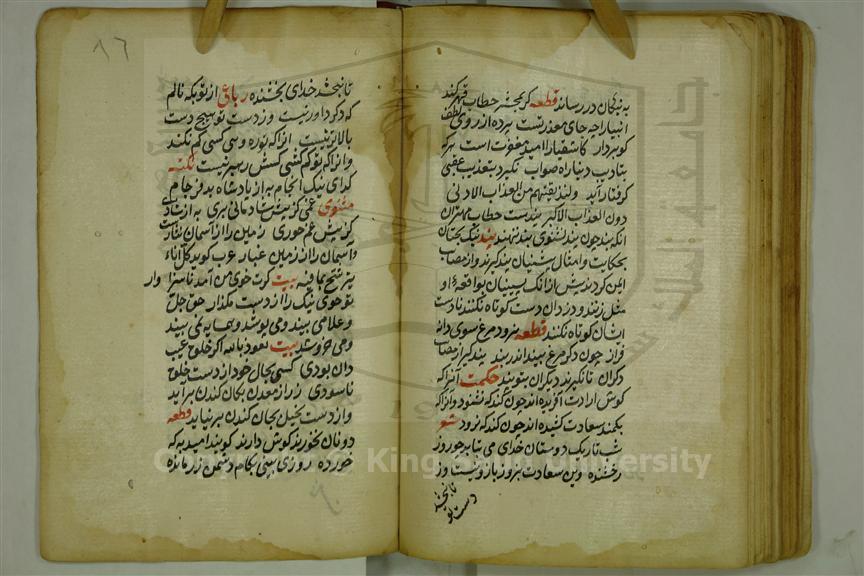 به نیکان در رساند قطعه کر بمحشر خطاب قهر کند
انبیا را چه جای معذرتست پرده از روی لطف
کو بردار کاشقیا را امید مغفرت است هر که
بتادیب دنیا راه صواب نکیرد بتعذیب عقبی
کرفتار آید ولنذیقنهم من العذاب الادنی
دون العذاب الاکبر پندست خطاب مهتران
انکه بند چون پند نشنوی بند نهند پند نیک بختان
بحکایت و امثال پشینیان پند کیرند و از مصاب
این کردنیش از انک پسینیان بواقعهٔ او
مثل زنند و دزدان دست کوتاه نکنند تا دست
ایشان کوتاه نکنند قطعه نرود مرغ سوی دانه
فراز چون دکر مرغ بیند اندر بند پند کیر از مصاب
دکران تا نکیرند دیکران بتو پند حکمت آنرا که
کوش ارادت آفریده اند چون کند که نشنود و انرا که
بکمند سعادت کشیده اند چون کند که نرود شعر
شب تاریک دوستان خدای می بتابد چو روز
رخشنده وین سعادت بزور بازو نیست
تا نبخشد
۸۶
تا نبخشد خدای بخشنده رباعی از تو بکه نالم
که دکر داور نیست وز دست تو هیچ دست
بالاتر نیست انرا که تو ره دهی کسی کم نکند
وانرا که تو کم کنی کسش رهبر نیست نکته
کدای نیک انجام به از پادشاه بد فرجام
مثنوی غمی کز پیش شادمانی بری به از شادی
کز پیش غم خوری زمین را از آسمان نثار است
و آسمان را از زمین غبار عرب کوید کل اناء
یترشح بما فیه بیت کرت خوی من آمد ناسزاوار
تو خوی نیک را از دست مکذار حق جل
و علا می بیند و می پوشد و همسایه نمی بیند
و می خروشد بیت نعوذ بالله اکر خلق غیب
دان بودی کسی بحال خود از دست خلق
ناسودی زر از معدن بکان کندن بر آید
و از دست بخیل بجان کندن بر نیاید قطعه
دونان نخورند کوش دارند کویند امید به که
خورده روزی بینی بکام دشمن زر مانده